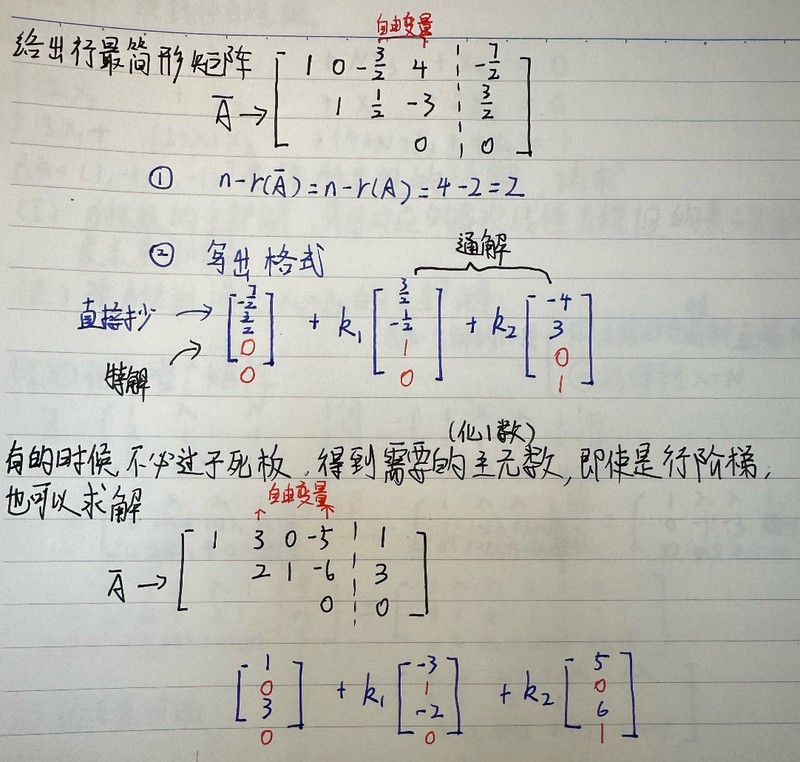 自由变量
给出行最简形矩阵 [ 1 0 -3/2 4 ¦ -7/2
Ā → 1 1/2 -3 ¦ 3/2
0 ¦ 0 ]
① n-r(Ā)=n-r(A)=4-2=2
② 写出格式 通解
直接抄 → [ -7/2 3/2 0 0 ] + k₁ [ 3/2 -1/2 1 0 ] + k₂ [ -4 3 0 1 ]
特解
(化1数)
有的时候,不必过于死板,得到需要的主元数,即使是行阶梯,
也可以求解
自由变量
[ 1 3 0 -5 ¦ 1
Ā → 2 1 -6 ¦ 3
0 ¦ 0 ]
[ 1 0 3 0 ] + k₁ [ -3 1 -2 0 ] + k₂ [ 5 0 6 1 ]